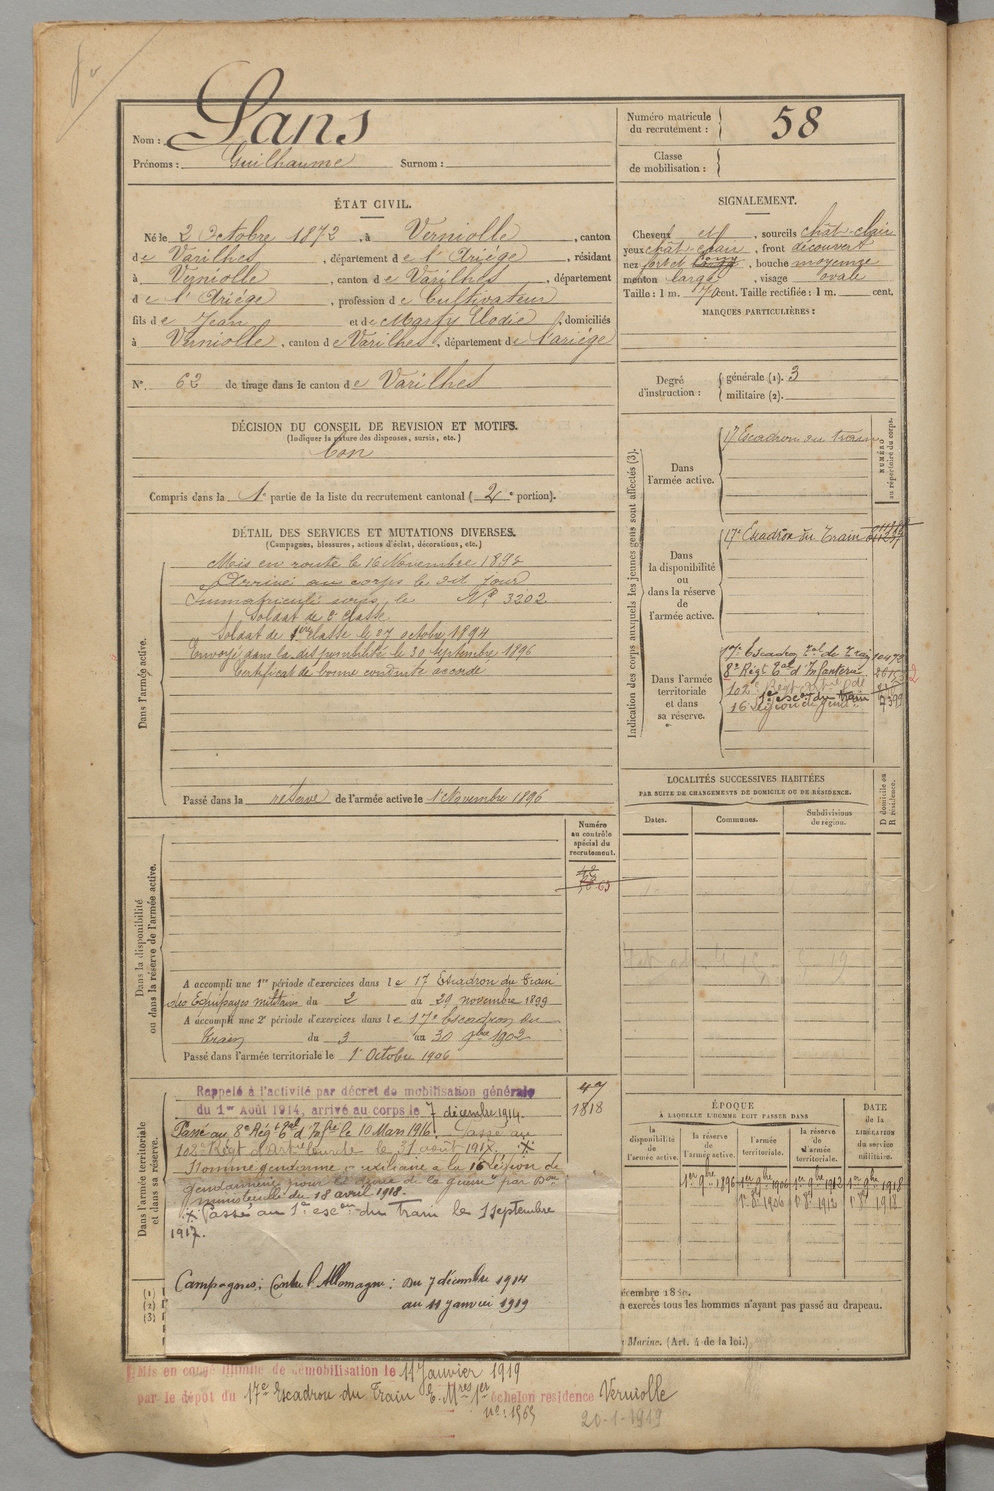 Nom : Sans
Prénoms : Guilhaume Surnom :
Numéro matricule du recrutement : 58
Classe de mobilisation :
ÉTAT CIVIL.
Né le 2 Octobre 1872, à Verniolle, canton
de Varilhes, département de l'Ariége, résidant
à Verniolle, canton de Varilhes, département
de l'Ariége, profession de Cultivateur
fils de Jean et de Marty Elodie, domiciliés
à Verniolle, canton de Varilhes, département de l'ariége
N°. 62 de tirage dans le canton de Varilhes
SIGNALEMENT.
Cheveux et, sourcils chât-clair
yeux chât-clair, front découvert
nez fort et, bouche moyenne
menton large, visage ovale
Taille : 1 m. 70 cent. Taille rectifiée : 1 m. cent.
MARQUES PARTICULIÈRES :
Degré d'instruction : générale (1). 3
militaire (2).
DÉCISION DU CONSEIL DE REVISION ET MOTIFS.
(Indiquer la nature des dispenses, sursis, etc.)
bon
Compris dans la 1e partie de la liste du recrutement cantonal (2e portion).
DÉTAIL DES SERVICES ET MUTATIONS DIVERSES.
(Campagnes, blessures, actions d'éclat, décorations, etc.)
Dans l'armée active.
Mis en route le 16 Novembre 1893
Arrivé au corps le dit jour
Immatriculé sous le No 3202
Soldat de 2e classe
Soldat de 1ere classe le 27 octobre 1894
Envoyé dans la disponibilité le 30 septembre 1896
Certificat de bonne conduite accordé
Passé dans la réserve de l'armée active le 1r Novembre 1896
Indication des corps auxquels les jeunes gens sont affectés (3).
NUMÉRO au répertoire du corps.
Dans l'armée active.
17 Escadron du train
Dans la disponibilité ou dans la réserve de l'armée active.
17e Escadron du Train
Dans l'armée territoriale et dans sa réserve.
17e Escadron Tal du Train 10472
8e Régt Tal d'Infanterie
102e
1e escon du train
16 Légion de gend 7399
LOCALITÉS SUCCESSIVES HABITÉES
PAR SUITE DE CHANGEMENTS DE DOMICILE OU DE RÉSIDENCE.
Dates. Communes. Subdivisions de région. D domicile ou R résidence.
Numéro au contrôle spécial du recrutement.
Dans la disponibilité ou dans la réserve de l'armée active.
A accompli une 1re période d'exercices dans le 17 Escadron du Train
des Equipages militaires du 2 au 29 novembre 1899
A accompli une 2e période d'exercices dans le 17e Escadron du
Train du 3 au 30 9bre 1902
Passé dans l'armée territoriale le 1r Octobre 1906
Dans l'armée territoriale et dans sa réserve.
Rappelé à l'activité par décret de mobilisation générale
du 1er Août 1914, arrivé au corps le 7 décembre 1914.
Passé au 8e Régt Tal d'Infrie le 10 Mars 1916. Passé au
102e Régt d'Artrie Lourde le 31 août 1917. X
Nommé gendarme auxiliaire à la 16 Légion de
gendarmerie pour la durée de la guerre par Don
ministérielle du 18 avril 1918.
X Passé au 1e escon du train le 1 septembre
1917.
Campagnes : Contre l'Allemagne : Du 7 décembre 1914
au 11 janvier 1919
49
1818
ÉPOQUE
A LAQUELLE L'HOMME DOIT PASSER DANS
la disponibilité de l'armée active. la réserve de l'armée active. l'armée territoriale. la réserve de l'armée territoriale. DATE de la LIBÉRATION du service militaire.
1er 9bre 1896 1er 9bre 1906 1er 9bre 1912 1er 9bre 1918
1r 8bre 1906 1r 8bre 1912 1r 8bre 1918
(1)
(2)
(3)
écembre 1889.
n exercés tous les hommes n'ayant pas passé au drapeau.
Marine. (Art. 4 de la loi.)
Mis en congé illimité de démobilisation le 11 Janvier 1919
par le dépôt du 17e Escadron du Train E. Mres 1er échelon résidence Verniolle
no : 1363
20-1-1919